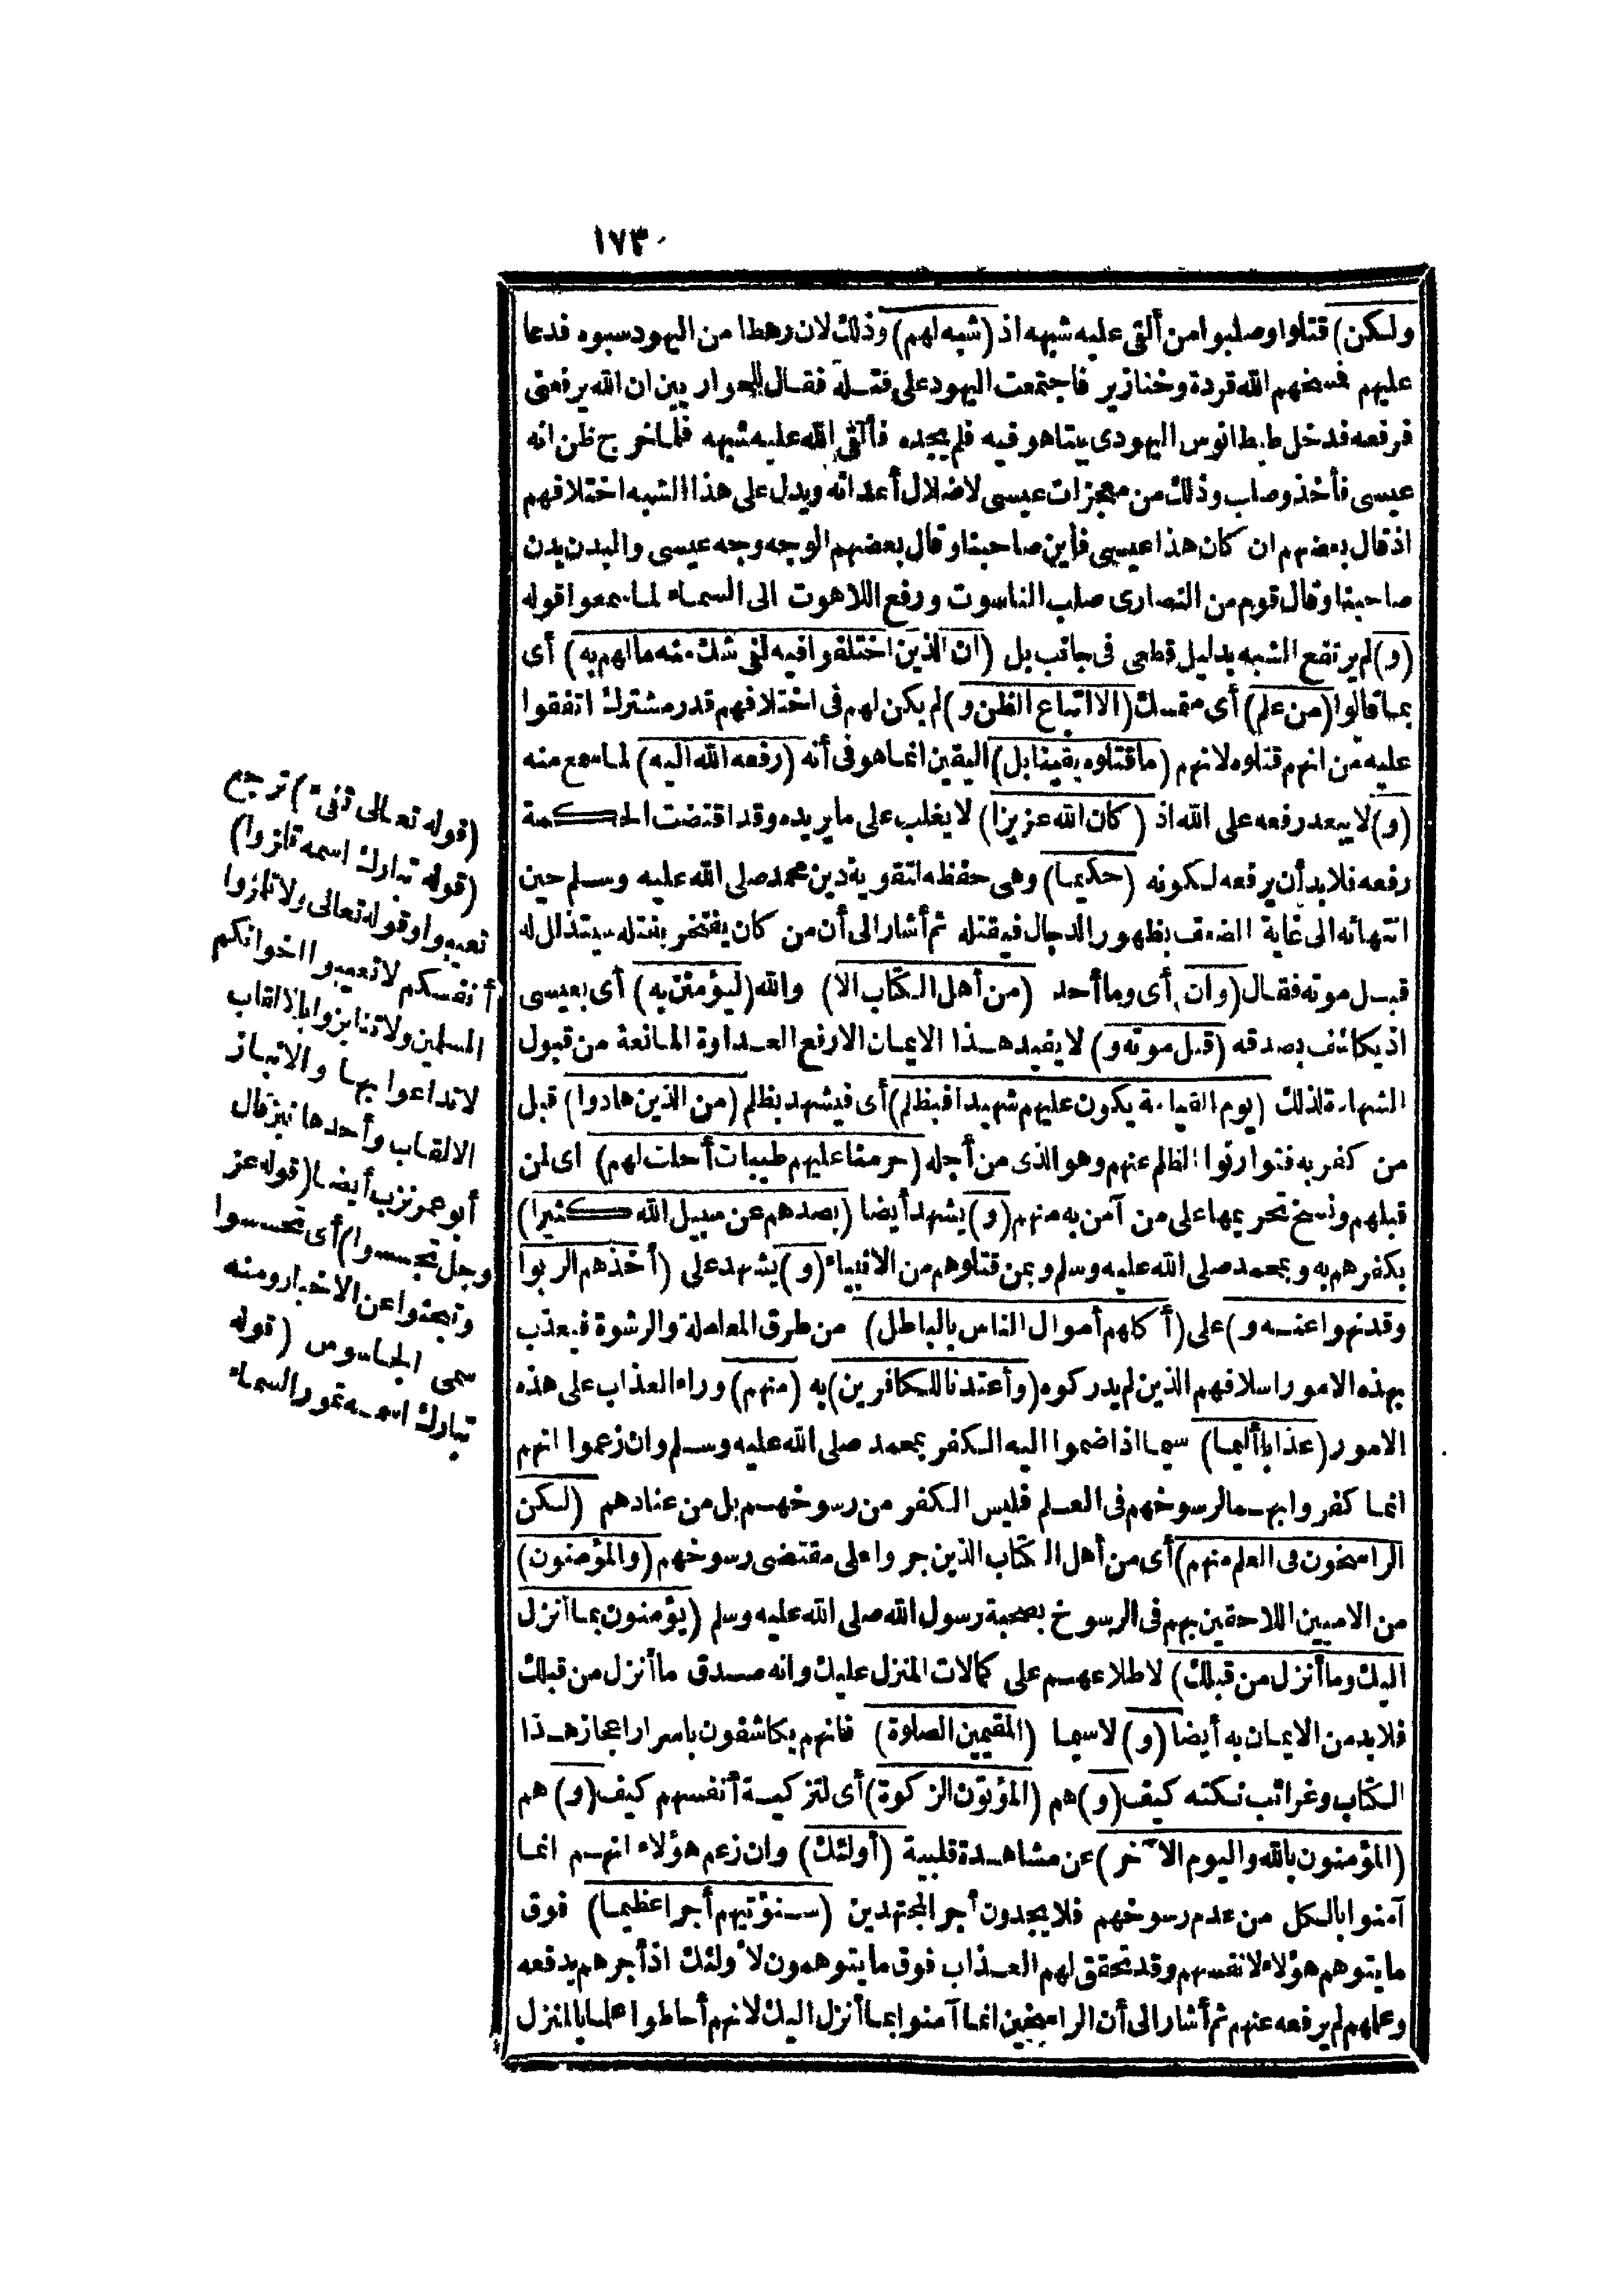 ١٧٣
ولكن) قتلوا وصلبوا من ألقى عليه شبهه اذ (شبه لهم) وذلك لان رهطا من اليهود سبوه فدعا
عليهم فمسخهم الله قردة وخنازير فاجتمعت اليهود على قتله فقال للحواريين ان الله يرفعنى
فرفعه فدخل طيطانوس اليهودى بيتا هو فيه فلم يجده فألقى الله عليه شبهه فلما خرج ظن انه
عيسى فأخذ وصلب وذلك من معجزات عيسى لاضلال أعدائه ويدل على هذا الشبه اختلافهم
اذ قال بعضهم ان كان هذا عيسى فأين صاحبنا وقال بعضهم الوجه وجه عيسى والبدن بدن
صاحبنا وقال قوم من النصارى صلب الناسوت ورفع اللاهوت الى السماء لما سمعوا قوله
(و) لم يرتفع الشبه بدليل قطعى فى جانب بل (ان الذين اختلفوا فيه لفى شك منه مالهم به) أى
بما قالوا (من علم) أى متمسك (الا اتباع الظن و) لم يكن لهم فى اختلافهم قدر مشترك اتفقوا
عليه من انهم قتلوه لانهم (ما قتلوه يقينا بل) اليقين انما هو فى أنه (رفعه الله اليه) لما سمع منه
(و) لا يبعد رفعه على الله اذ (كان الله عزيزا) لا يغلب على ما يريده وقد اقتضت الحكمة
رفعه فلا بد أن يرفعه لكونه (حكيما) وهى حفظه لتقوية دين محمد صلى الله عليه وسلم حين
انتهائه الى غاية الضعف بظهور الدجال فيقتله ثم أشار الى أن من كان يفتخر بقتله سيتذلل له
قبل موته فقال (وان) أى وما أحد (من أهل الكتاب الا) والله (ليؤمنن به) أى بعيسى
اذ يكاشف بصدقه (قبل موته و) لا يفيد هذا الايمان الا رفع العداوة المانعة من قبول
الشهادة لذلك (يوم القيامة يكون عليهم شهيدا فبظلم) أى فيشهد بظلم (من الذين هادوا) قبل
من كفر به فتوارثوا الظلم عنهم وهو الذى من أجله (حرمنا عليهم طيبات أحلت لهم) اى لمن
قبلهم ونسخ تحريمها على من آمن به منهم (و) يشهد أيضا (بصدهم عن سبيل الله كثيرا)
بكفرهم به وبمحمد صلى الله عليه وسلم وبمن قتلوهم من الانبياء (و) يشهد على (أخذهم الربوا
وقد نهوا عنه و) على (أكلهم أموال الناس بالباطل) من طرق المعاملة والرشوة فيعذب
بهذه الامور اسلافهم الذين لم يدركوه (وأعتدنا للكافرين) به (منهم) وراء العذاب على هذه
الامور (عذابا أليما) سيما اذا ضموا اليه الكفر بمحمد صلى الله عليه وسلم وان زعموا انهم
انما كفروا بهما لرسوخهم فى العلم فليس الكفر من رسوخهم بل من عنادهم (لكن
الراسخون فى العلم منهم) أى من أهل الكتاب الذين جروا على مقتضى رسوخهم (والمؤمنون)
من الاميين اللاحقين بهم فى الرسوخ بصحبة رسول الله صلى الله عليه وسلم (يؤمنون بما أنزل
اليك وما أنزل من قبلك) لاطلاعهم على كمالات المنزل عليك وانه مصدق ما أنزل من قبلك
فلا بد من الايمان به أيضا (و) لا سيما (المقيمين الصلوة) فانهم يكاشفون باسرار اعجاز هذا
الكتاب وغرائب نكته كيف (و) هم (المؤتون الزكوة) أى لتزكية أنفسهم كيف (و) هم
(المؤمنون بالله واليوم الآخر) عن مشاهدة قلبية (أولئك) وان زعم هؤلاء انهم انما
آمنوا بالكل من عدم رسوخهم فلا يجدون أجر المجتهدين (سنؤتيهم أجرا عظيما) فوق
ما يتوهم هؤلاء لانفسهم وقد تحقق لهم العذاب فوق ما يتوهمون لأولئك اذ أجرهم يدفعه
وعلمهم لم يرفعه عنهم ثم أشار الى أن الراسخين انما آمنوا بما أنزل اليك لانهم أحاطوا علما بالمنزل
(قوله تعالى تفىء) ترجع
(قوله تبارك اسمه تلمزوا)
تعيبوا وقوله تعالى ولا تلمزوا
أنفسكم لا تعيبوا اخوانكم
المسلمين ولا تنابزوا بالالقاب
لا تداعوا بها والانباز
الالقاب وأحدها نبز قال
أبو عمر نزب أيضا (قوله عز
وجل تجسسوا) أى تحسسوا
وتبحثوا عن الاخبار ومنه
سمى الجاسوس (قوله
تبارك اسمه تمور السماء